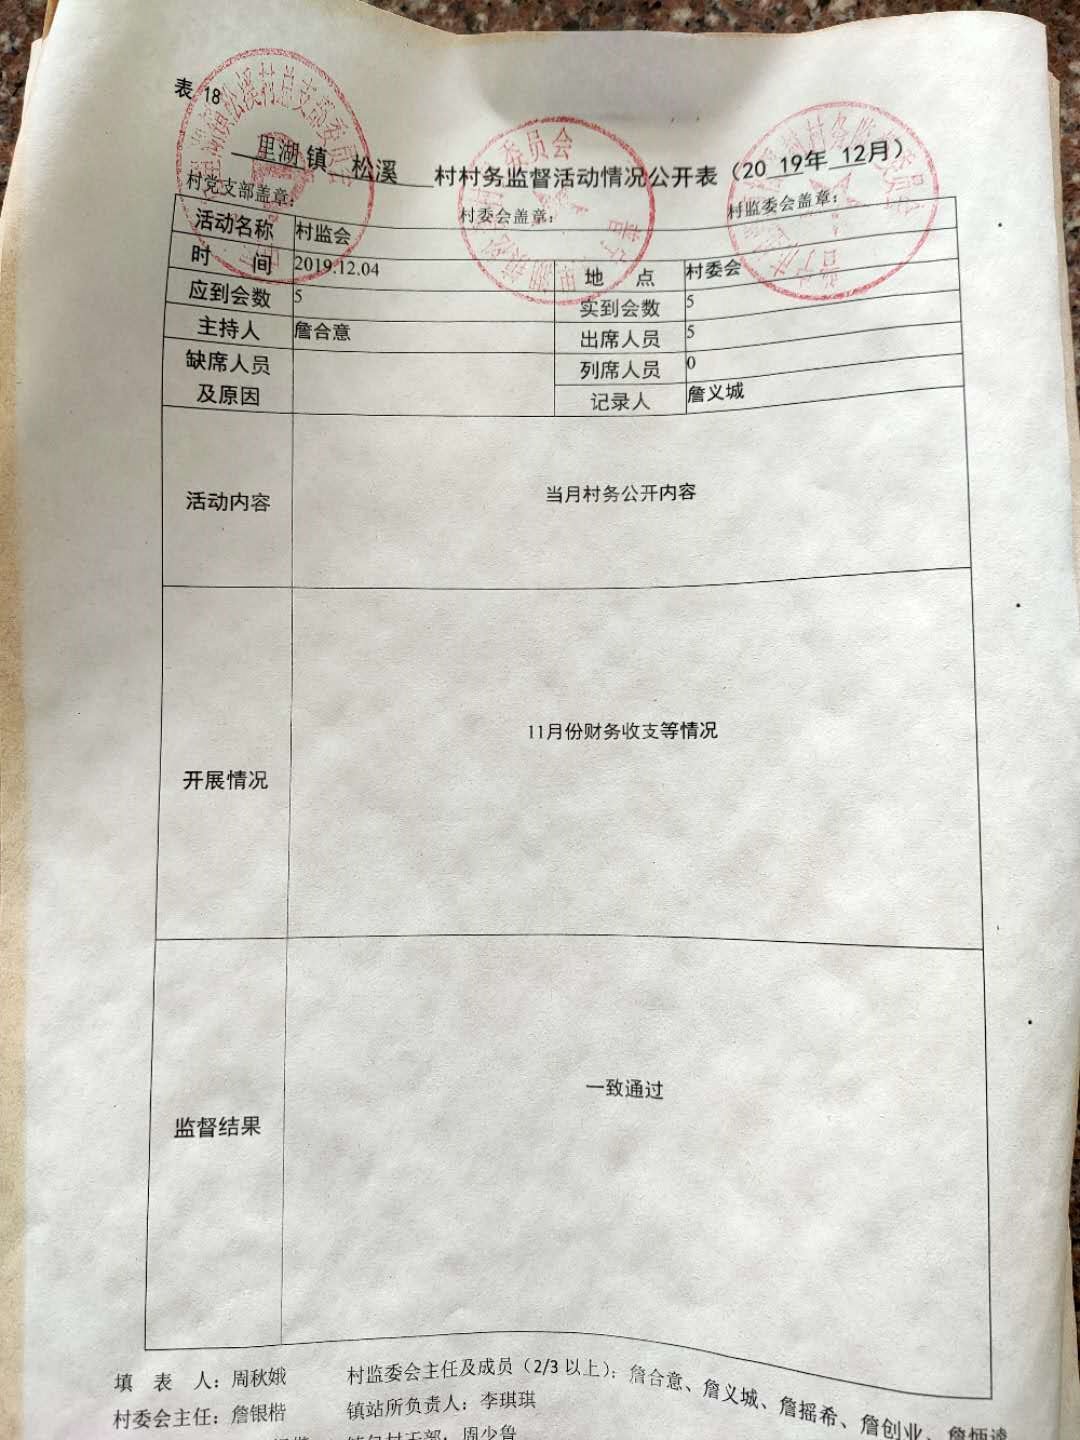 表 18
里湖 镇 松溪 村村务监督活动情况公开表（20 19 年 12 月）
村党支部盖章： 村委会盖章： 村监委会盖章：
活动名称 村监会
时 间 2019.12.04 地 点 村委会
应到会数 5 实到会数 5
主持人 詹合意 出席人员 5
缺席人员及原因 列席人员 0
记录人 詹义城
活动内容 当月村务公开内容
开展情况 11月份财务收支等情况
监督结果 一致通过
填 表 人：周秋娥 村监委会主任及成员（2/3 以上）：詹合意、詹义城、詹摇希、詹创业、詹炳
村委会主任：詹银楷 镇站所负责人：李琪琪
周少鲁